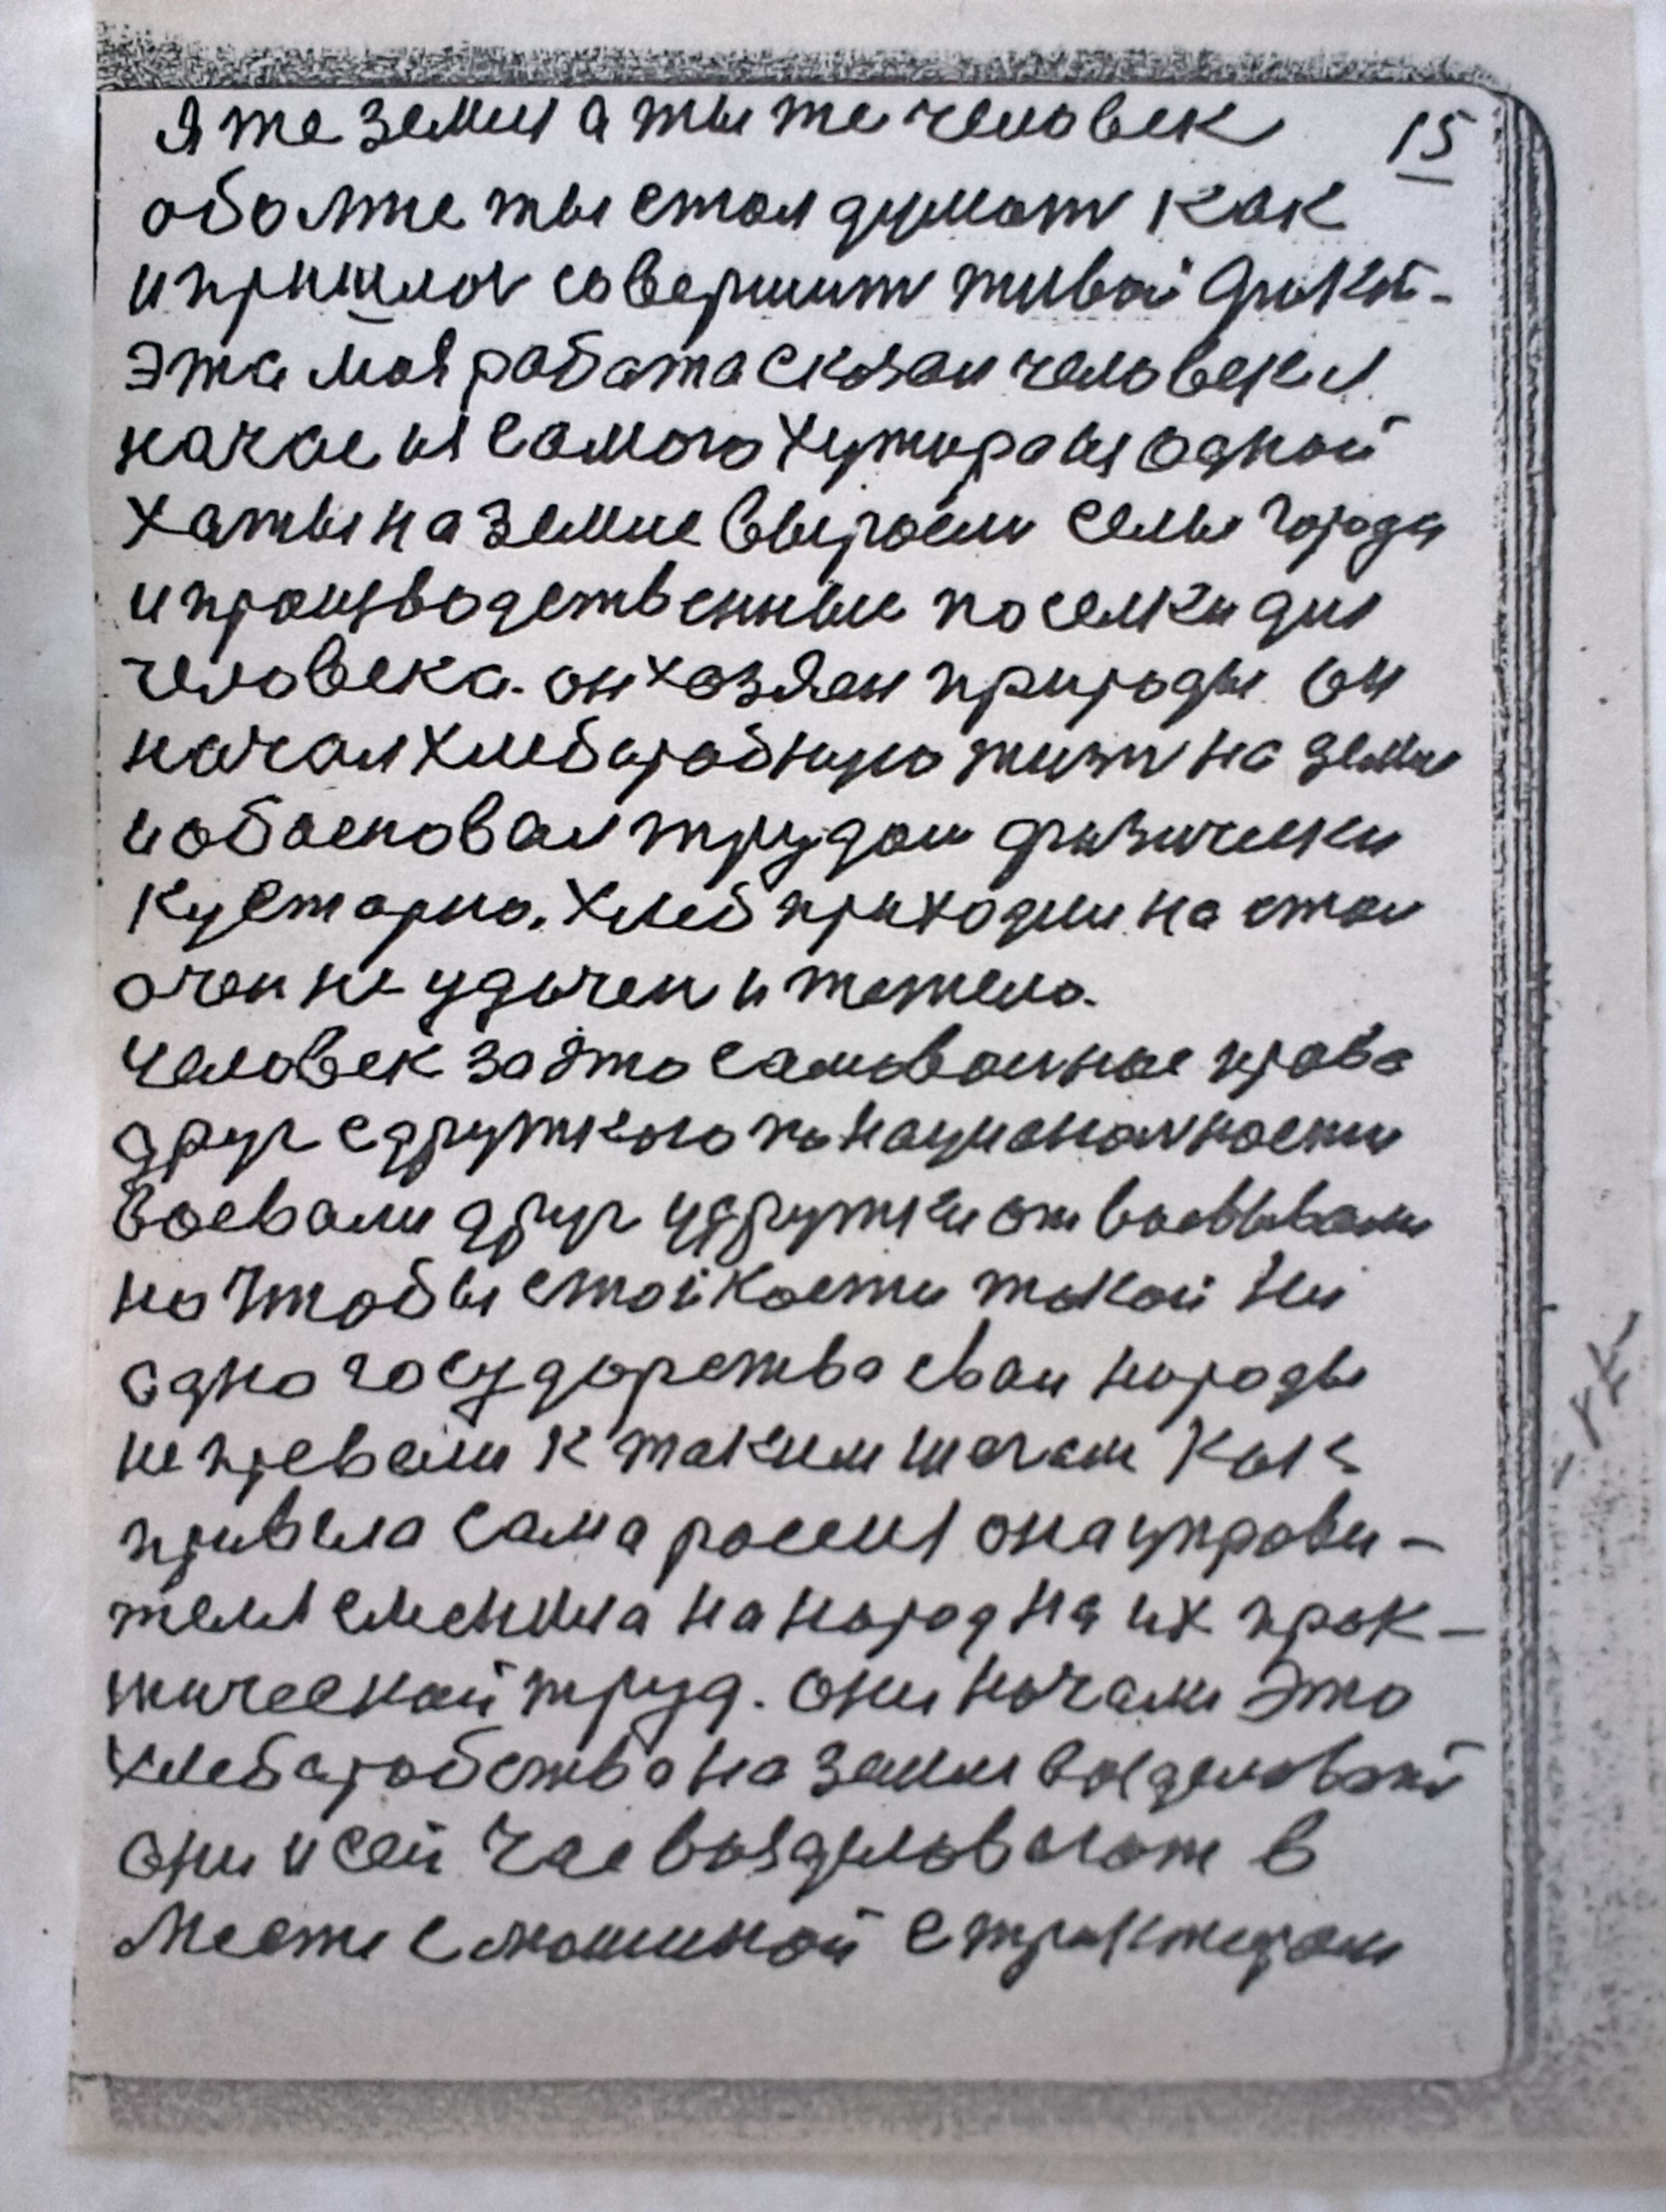 я же земля а ты же человек 15
обо мне ты стал думать как
и пришлось совершить живой факт-
эта моя работа сказал человек я
начал из самого хутира из одной
хаты на земле выросли селы города
и производственные поселки для
человека. он хозяен природы он
начал хлебаробную жизнь на земле
и обосновал трудом физически
кустарно. Хлеб приходил на стол
очен не удачен и тежело.
человек за это самовольные права
друг с дружкою по национальности
воевали друг у дружки отвоевывали
но чтобы стойкости такой ни
одно государства сваи народы
не превели к таким шагам как
привела сама россия она управи-
теля сменила на народ на их прак-
тический труд. они начали это
хлебаробства на земли возделоват
они и сей час возделовают в
месте с машиной с трактером